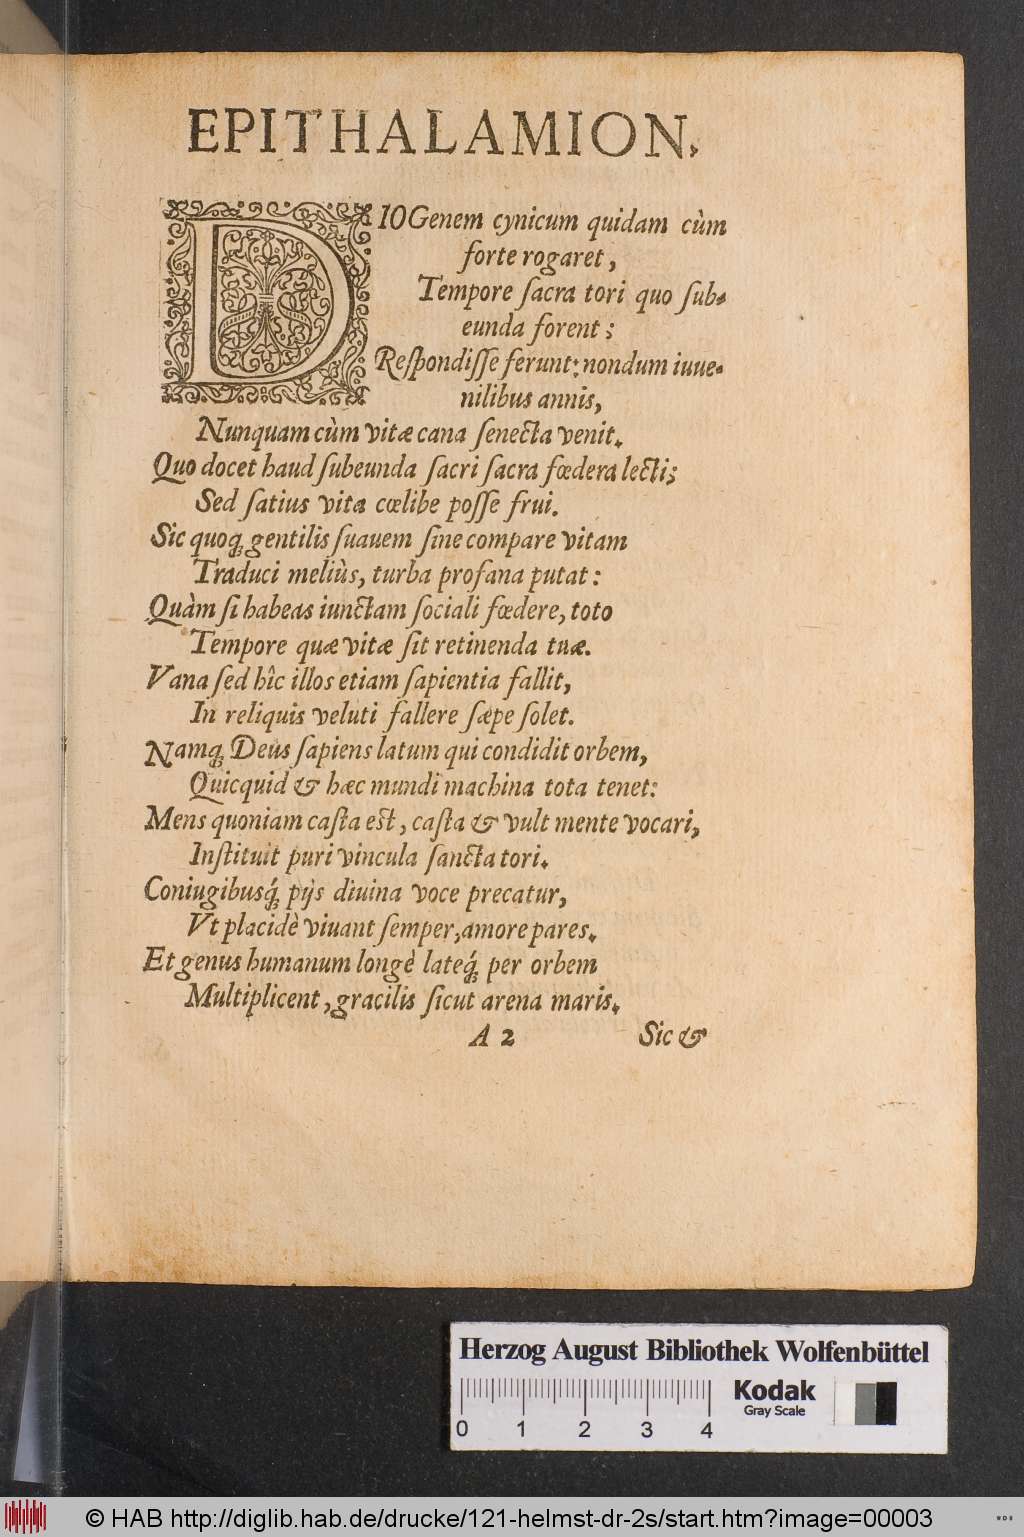 EPITHALAMION,
DIOGenem cynicum quidam cùm
forte rogaret,
Tempore ſacra tori quo ſub-
eunda forent;
Reſpondiſſe ferunt: nondum iuue-
nilibus annis,
Nunquam cùm vitæ cana ſenecta venit.
Quo docet haud ſubeunda ſacri ſacra fœdera lecti;
Sed ſatius vita cœlibe poſſe frui.
Sic quoq; gentilis ſuauem ſine compare vitam
Traduci meliùs, turba profana putat:
Quàm ſi habeas iunctam ſociali fœdere, toto
Tempore quæ vitæ ſit retinenda tuæ.
Vana ſed hîc illos etiam ſapientia fallit,
In reliquis veluti fallere ſæpe ſolet.
Namq; Deus ſapiens latum qui condidit orbem,
Quicquid & hæc mundi machina tota tenet:
Mens quoniam caſta eſt, caſta & vult mente vocari,
Inſtituit puri vincula ſancta tori.
Coniugibusq́; pijs diuina voce precatur,
Vt placidè viuant ſemper, amore pares.
Et genus humanum longè lateq́; per orbem
Multiplicent, gracilis ſicut arena maris.
A 2 Sic &
Herzog August Bibliothek Wolfenbüttel
Kodak
Gray Scale
0 1 2 3 4
© HAB http://diglib.hab.de/drucke/121-helmst-dr-2s/start.htm?image=00003